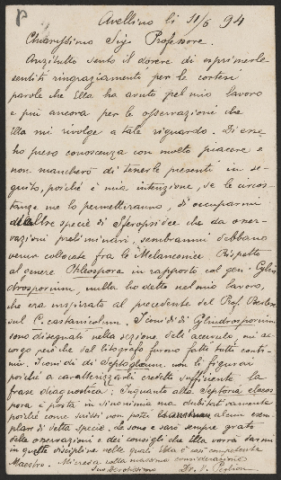 Avellino li 11/6 94
Chiarissimo Sig. Professore.
Anzitutto sento il dovere di esprimerle
sentiti ringraziamenti per le cortesi
parole che Ella ha avuto pel mio lavoro
e più ancora per le osservazioni che
Ella mi rivolge a tale riguardo. Di esse
ho preso conoscenza con molto piacere e
non mancherò di tenerle presenti in se-
guito, poiché è mia intenzione, se le circos-
tanze me lo permetteranno, di occuparmi
di altre specie di Sferopsidee che da osser-
vazioni preliminari sembranmi debbano
venir collocate fra le Melanconiee. Rispetto
al genere Phleospora in rapporto col gen. Cylin-
drosporium, nulla ho detto nel mio lavoro,
che era inspirato al precedente del Prof. Berlese
sul C. castanicolum. I conidi di Cylindrosporium
sono disegnati nella sezione dell' acervulo, mi ac-
corgo però che dal litografo furono fatti tutti conti-
nui. I conidi di Septogloeum non li figurai
poiché a caratterizzarli credetti sufficiente la
frase diagnostica. Inquanto alla Septoria
spora è posta in sinonimia non
poiché come scrissi non potei alcun esem-
plare di detta specie. Le sono e sarò sempre grato
delle osservazioni e dei consigli che Ella vorrà darmi
in queste discipline nelle quali Ella è così competente
Maestro. Mi creda colla massima considerazione
Suo Devotissimo Dr. V. Peglion